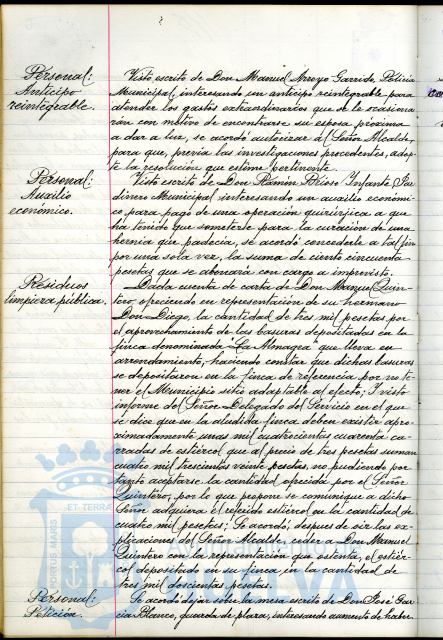 Personal:
Anticipo
reintegrable.
Visto escrito de Don Manuel Arroyo Garrido, Policia
Municipal, interesando un anticipo reintegrable para
atender los gastos extraordinarios que se le ocasima
rán con motivo de encontrarse su esposa próxima
a dar a luz, se acordó autorizar al Señor Alcalde,
para que, previa las investigaciones procedentes, adop-
te la resolución que estime pertinente.
Personal:
Auxilio
económico.
Visto escrito de Don Ramón Infante, Jar
dinero Municipal, interesando un auxilio económi-
co, para pago de una operación quirúrjica a que
ha tenido que someterse para la curación de una
hernia que padecia, se acordó concederle a tal fin
por una sola vez, la suma de ciento cincuenta
pesetas que se abonará con cargo a imprevisto.
Residuos
limpieza pública.
Dada cuenta de carta de Don Manuel Quin-
tero, ofreciendo en representación de su hermano
Don Diego, la cantidad de tres mil pesetas por
el aprovechamiento de las basuras depositadas en la
finca denominada "La Monagra" que lleva en
arrendamiento, haciendo constar que dichas basuras
se depositaron en la finca de referencia, por no te-
ner el Municipio sitio adaptable al efecto; I visto
informe del Señor Delegado del Servicio en el que
se dice que en la aludida finca deben existir apro-
ximadamente unas mil cuatrocientas cuarenta ca-
rradas de estiércol que al precio de tres pesetas suman
cuatro mil trescientas veinte pesetas, no pudiendo por
tanto aceptarse la cantidad ofrecida por el Señor
Quintero, por lo que propone se comunique a dicho
Señor adquiera el referido estiércol en la cantidad de
cuatro mil pesetas; Se acordó, despues de oir las ex-
plicaciones del Señor Alcalde, ceder a Don Manuel
Quintero con la representación que ostenta, el estiér-
col depositado en su finca en la cantidad de
tres mil doscientas pesetas.
Personal:
Petición.
Se acordó dejar sobre la mesa escrito de Don José Gar
cia Blanco, guarda de plaza, interesando aumento de haber
PORTUS MARIS
ET TERRAE
HUELVA